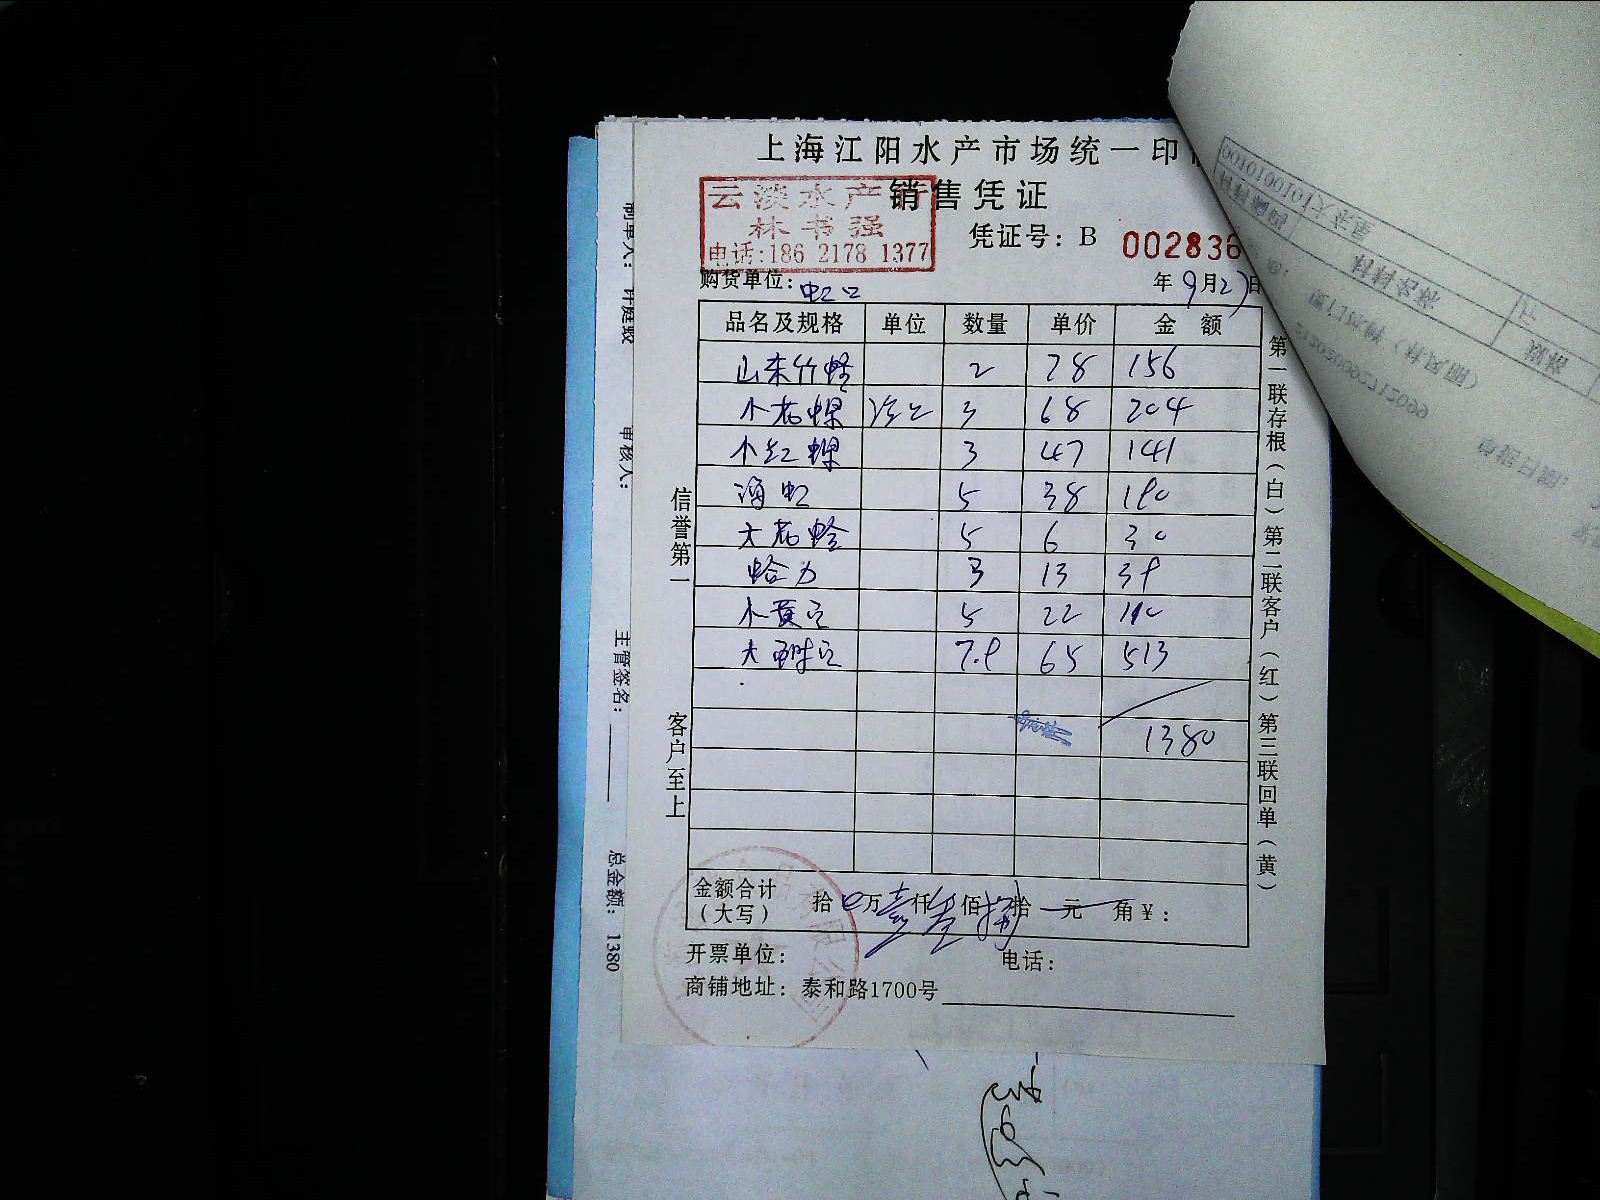 上海江阳水产市场统一印
销售凭证
云淡水产行
林书强
电话:186 2178 1377
凭证号: B 002836
购货单位: 虹口
年 9月27日
品名及规格 单位 数量 单价 金 额
山东竹蛏 2 78 156
小花螺 3 68 204
小红螺 3 47 141
海虹 5 38 190
大花蛤 5 6 30
蛤力 3 13 39
小黄 5 22 110
大 7.9 65 513
1380
金额合计
(大写)
拾 0万壹仟叁佰捌拾 元 角¥:
开票单位: 电话:
商铺地址: 泰和路1700号
信誉第一
客户至上
第一联存根(白)第二联客户(红)第三联回单(黄)
制单人: 计庭毅
审核人:
主管签名:
总金额: 1380